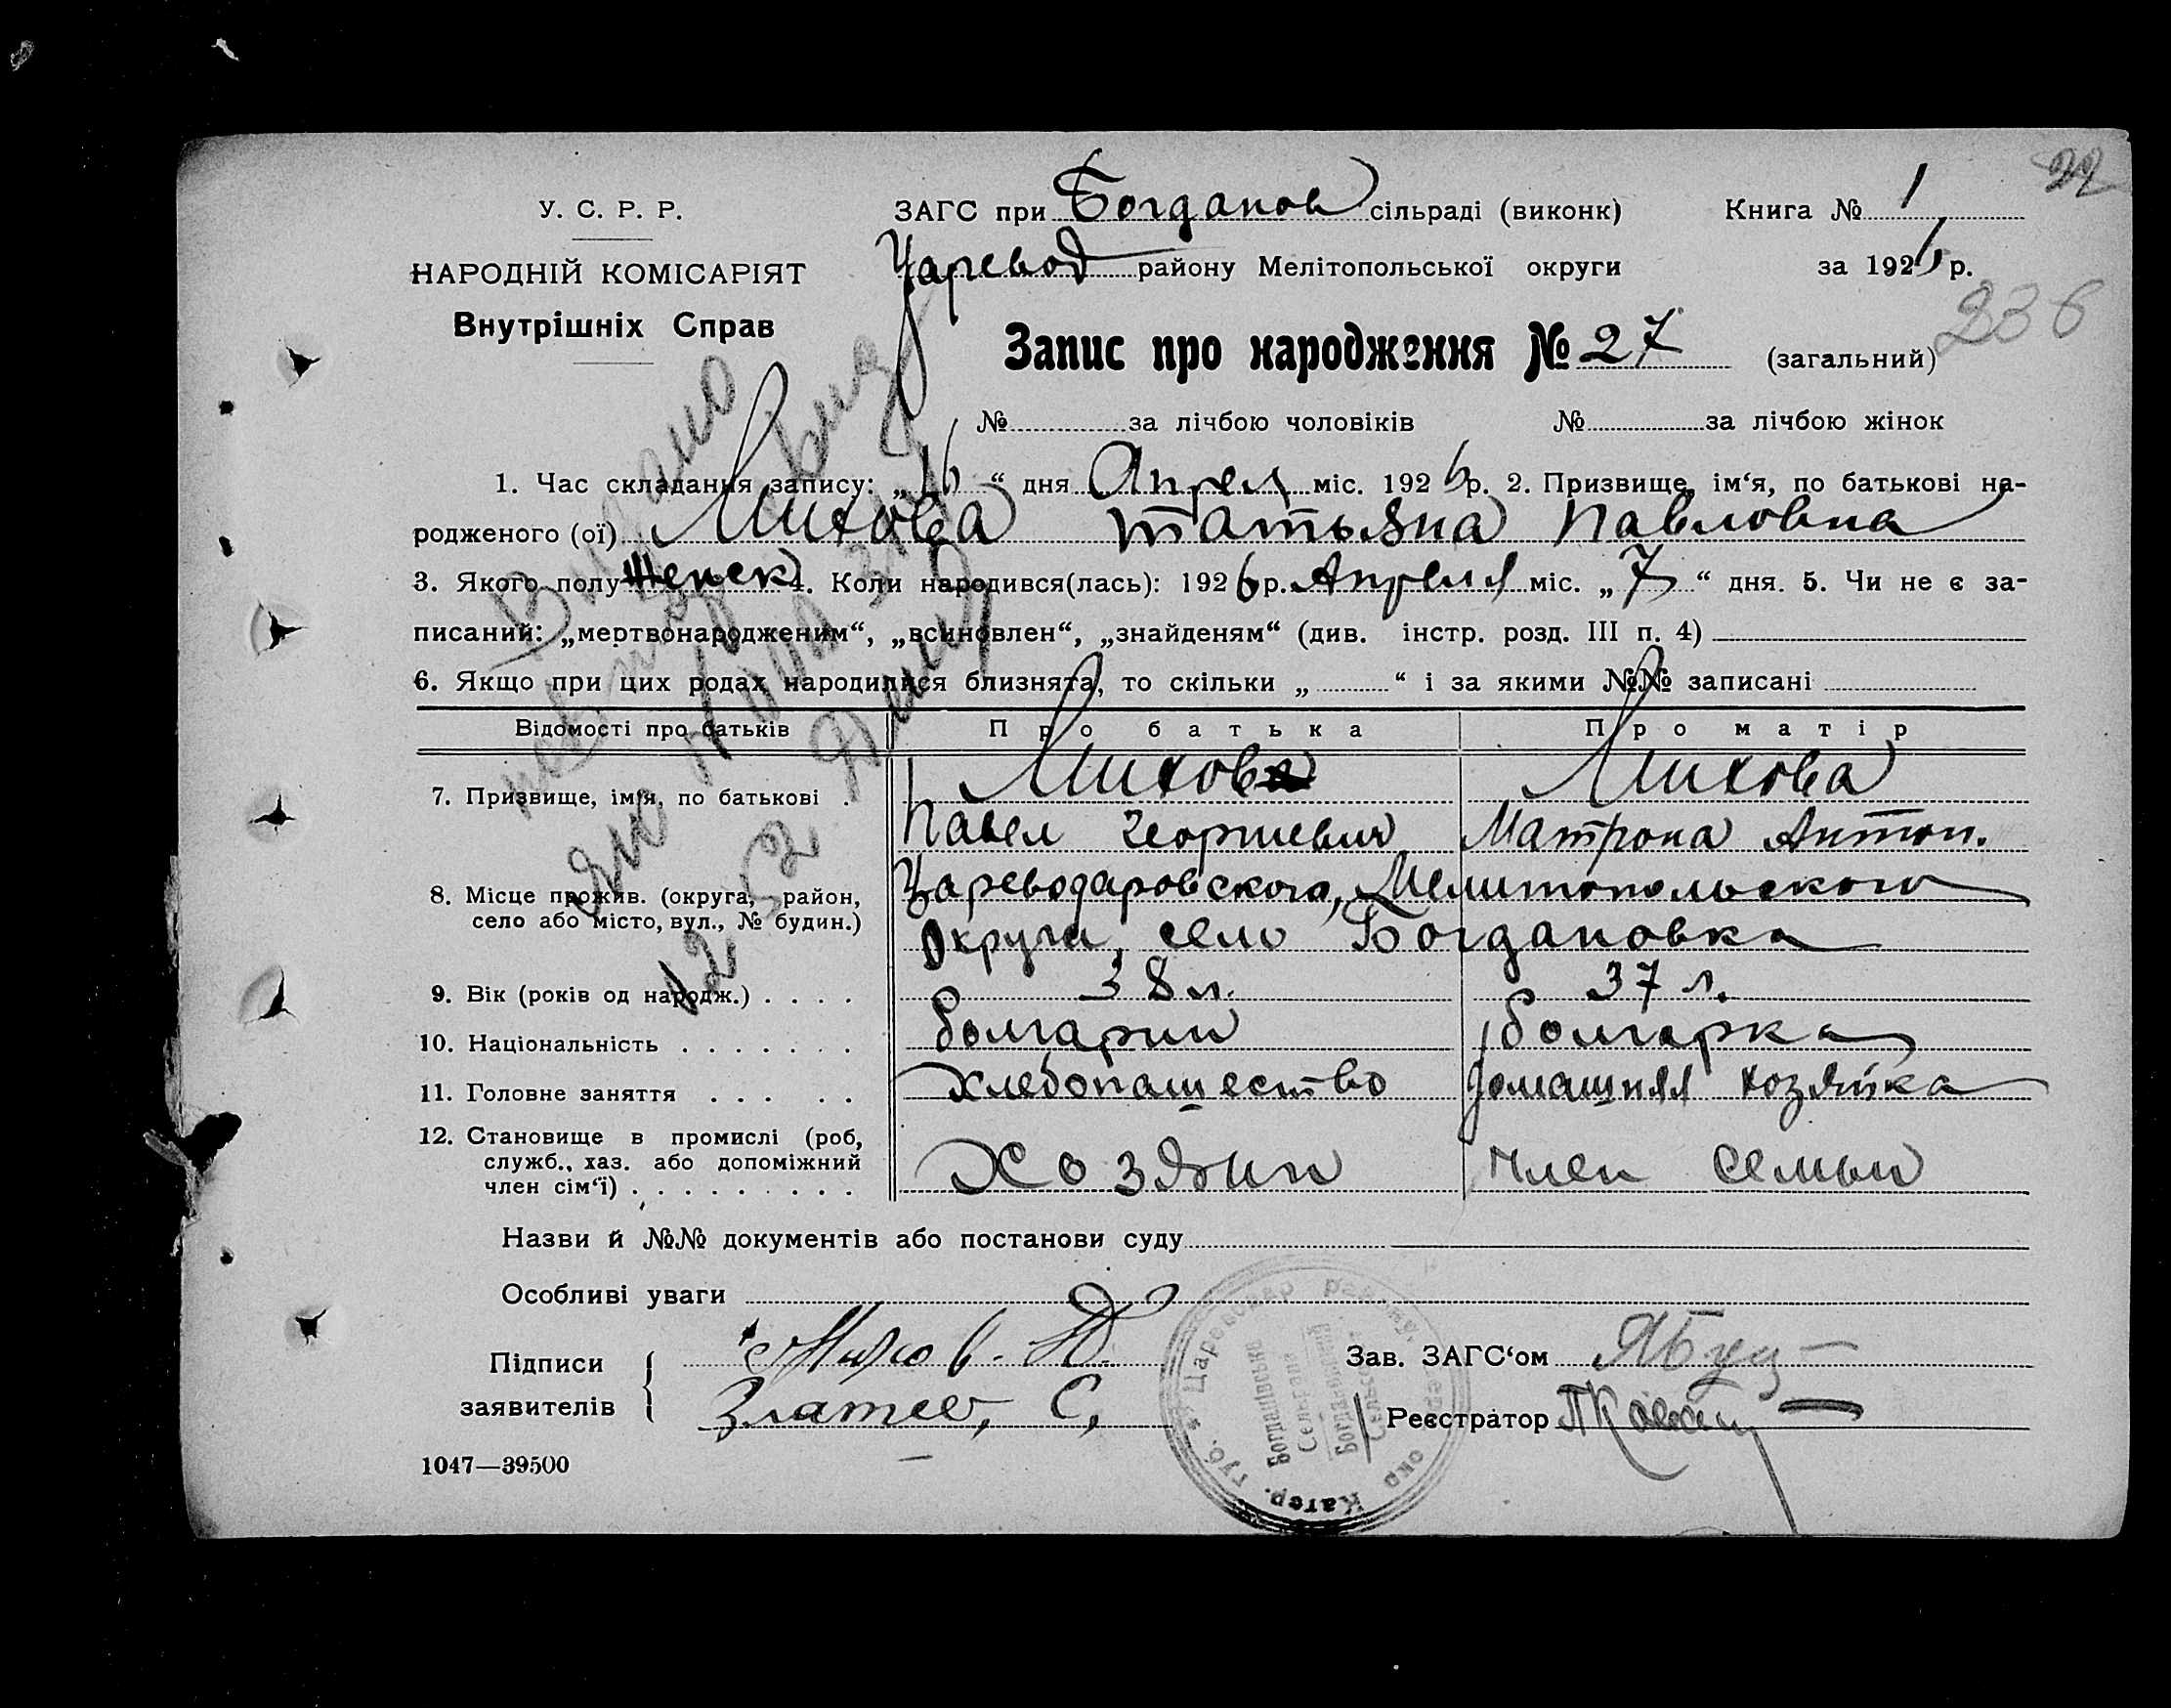 22
У. С. Р. Р.
ЗАГС при Богданов сільраді (виконк) Книга № 1
НАРОДНІЙ КОМІСАРІЯТ
Царевод району Мелітопольської округи за 1926 р.
Внутрішніх Справ
236
Запис про народження № 27 (загальний)
№ за лічбою чоловіків № за лічбою жінок
1. Час складання запису: „16“ дня Апрел міс. 1926 р. 2. Призвище, ім‘я, по батькові на-
родженого (ої) Михова Татьяна Павловна
3. Якого полу Женск 4. Коли народився(лась): 1926 р. Апреля міс. „7“ дня. 5. Чи не є за-
писаний: „мертвонародженим“, „всиновлен“, „знайденям“ (див. інстр. розд. III п. 4)
6. Якщо при цих родах народилися близнята, то скільки „ “ і за якими №№ записані
Відомості про батьків Про батька Про матір
7. Призвище, ім‘я, по батькові . Михов Михова
Павел Георгиевич Матрона Антон.
8. Місце прожив. (округа, район, Цареводаровского, Мелитопольского
село або місто, вул., № будин.) Округи, село Богдановка
9. Вік (років од народж.) . . . . 38 л. 37 л.
10. Національність . . . . . . . болгарин болгарка
11. Головне заняття . . . . . Хлебопашество домашняя хозяйка
12. Становище в промислі (роб,
служб., хаз. або допоміжний
член сім‘ї) . . . . . . . . . Хозяин Член семьи
Назви й №№ документів або постанови суду
Особливі уваги
Підписи Михов. Зав. ЗАГС‘ом
заявителів Златев, С, Реєстратор
1047—39500
Выдано
12 52
Цареводар район
Катер. губ.
Богданівська
Сельрада
Богдановский
Сельсовет